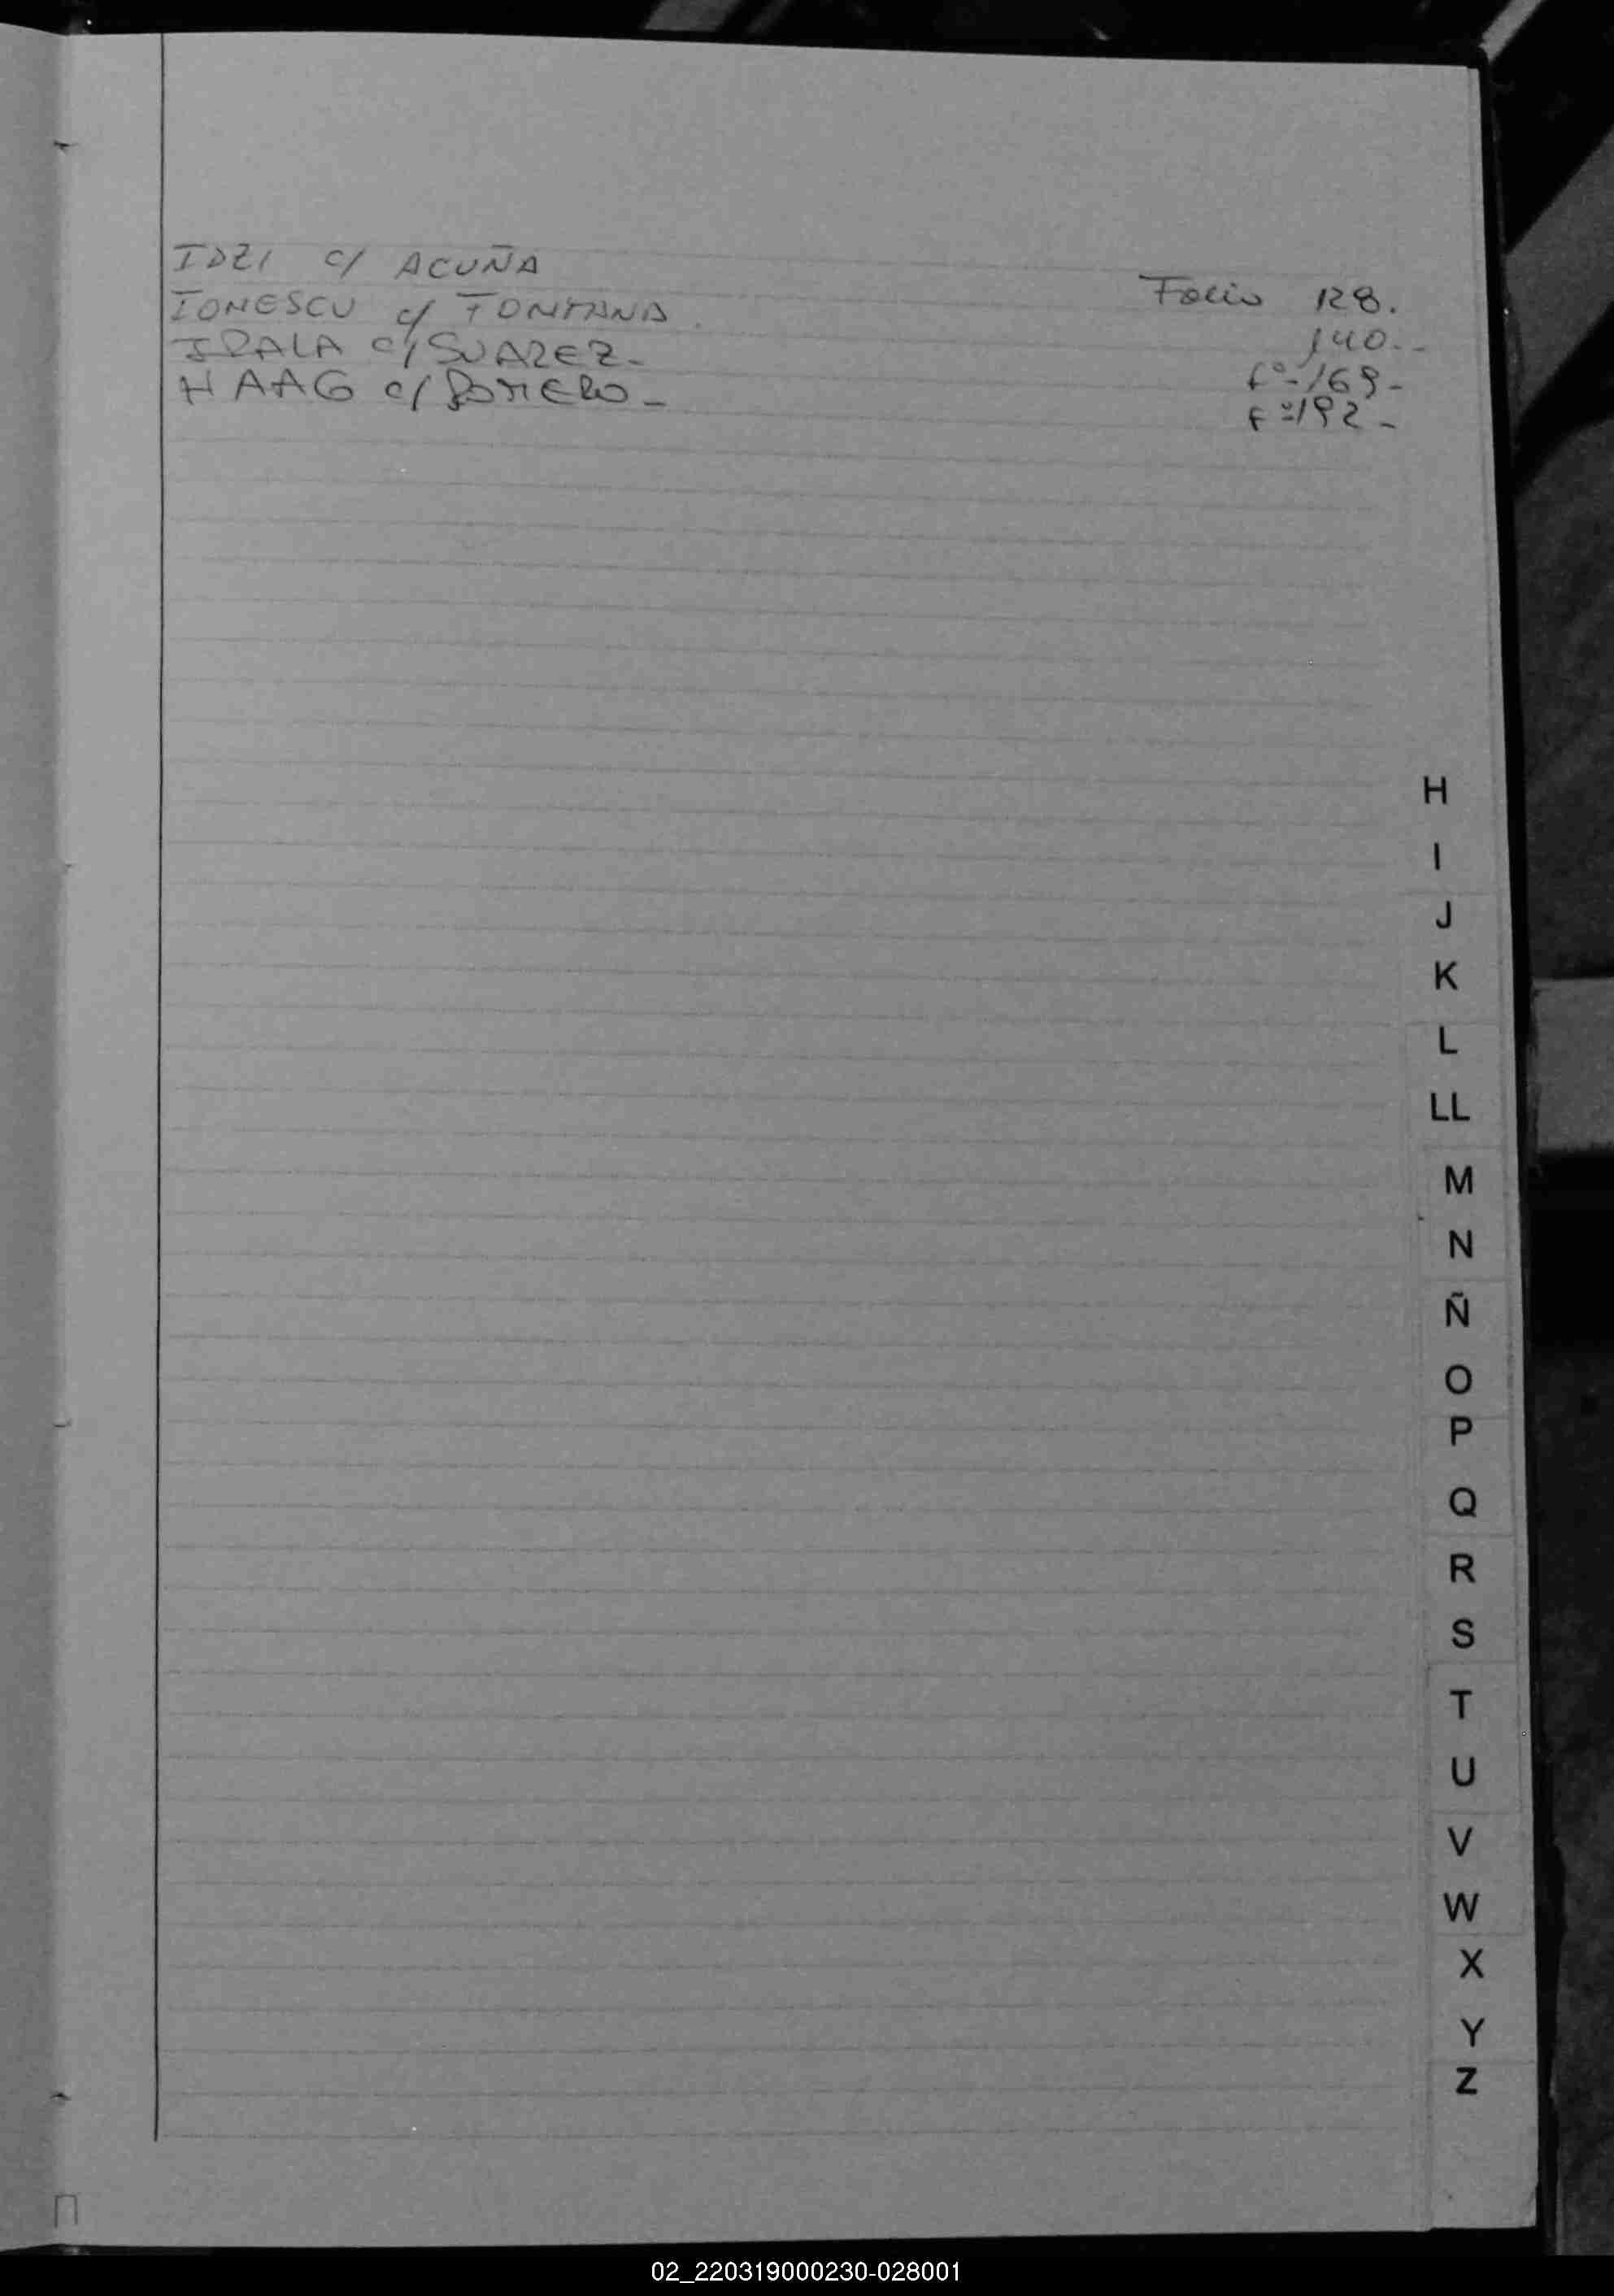 IDZI c/ ACUÑA Folio 128.
IONESCU c/ FONTANA. 140.-
IRALA c/ SUAREZ- fº 169-
HAAG c/ ROMERO- fº 192-
H
I
J
K
L
LL
M
N
Ñ
O
P
Q
R
S
T
U
V
W
X
Y
Z
02_220319000230-028001